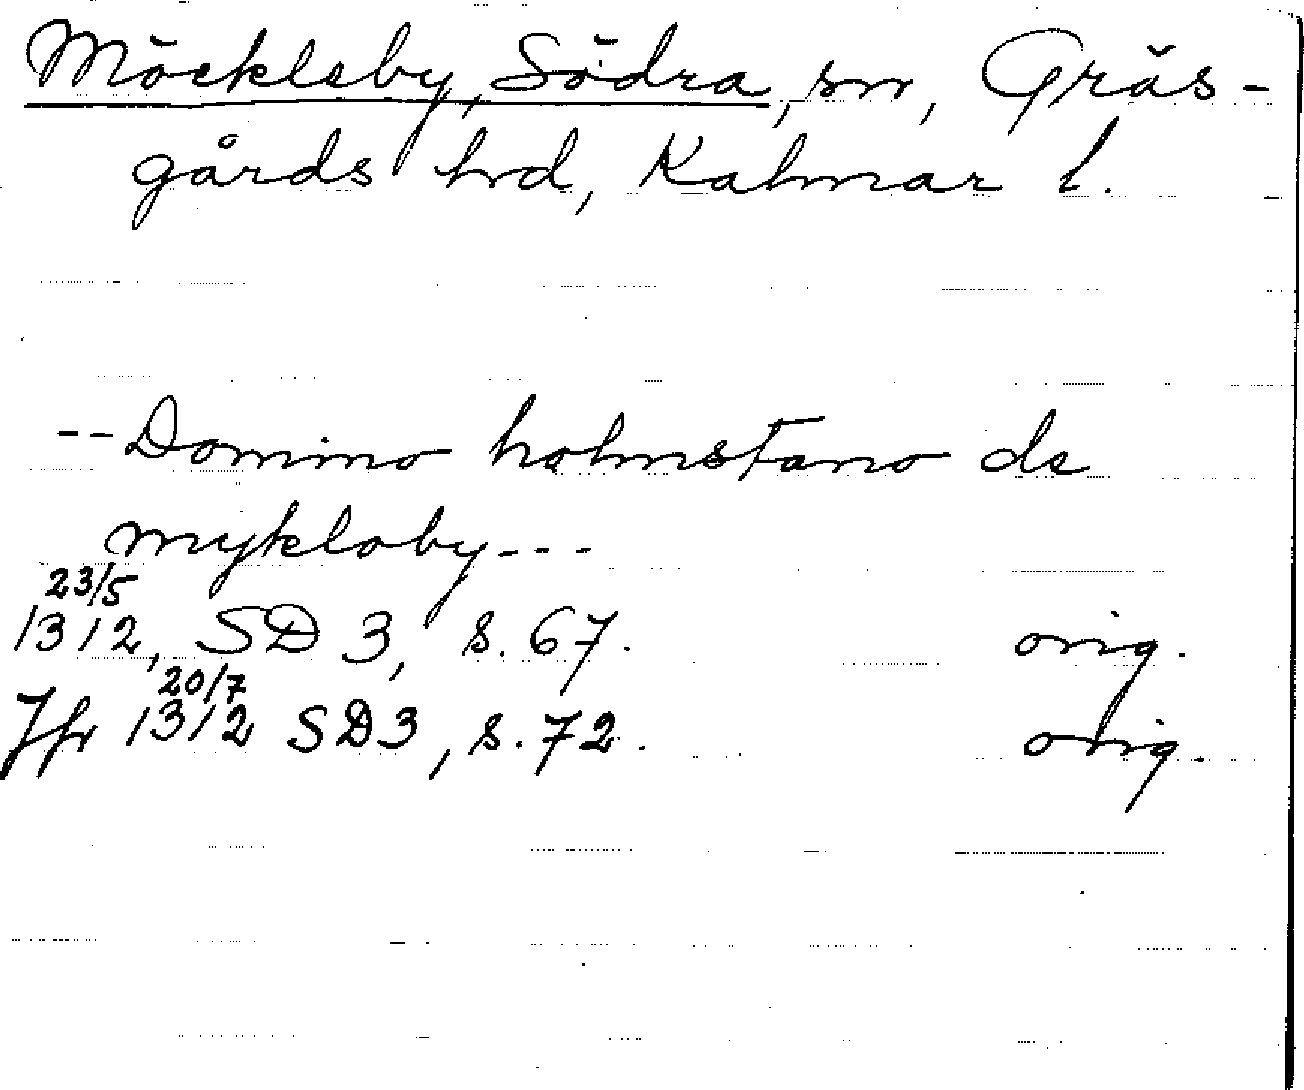 Möckleby, Södra, sn, Gräs-
gårds hrd, Kalmar l.
-- Domino holmstano de
mykloby ---
23/5
1312, SD 3, s. 67. orig.
20/7
Jfr 1312 SD3, s. 72. orig.